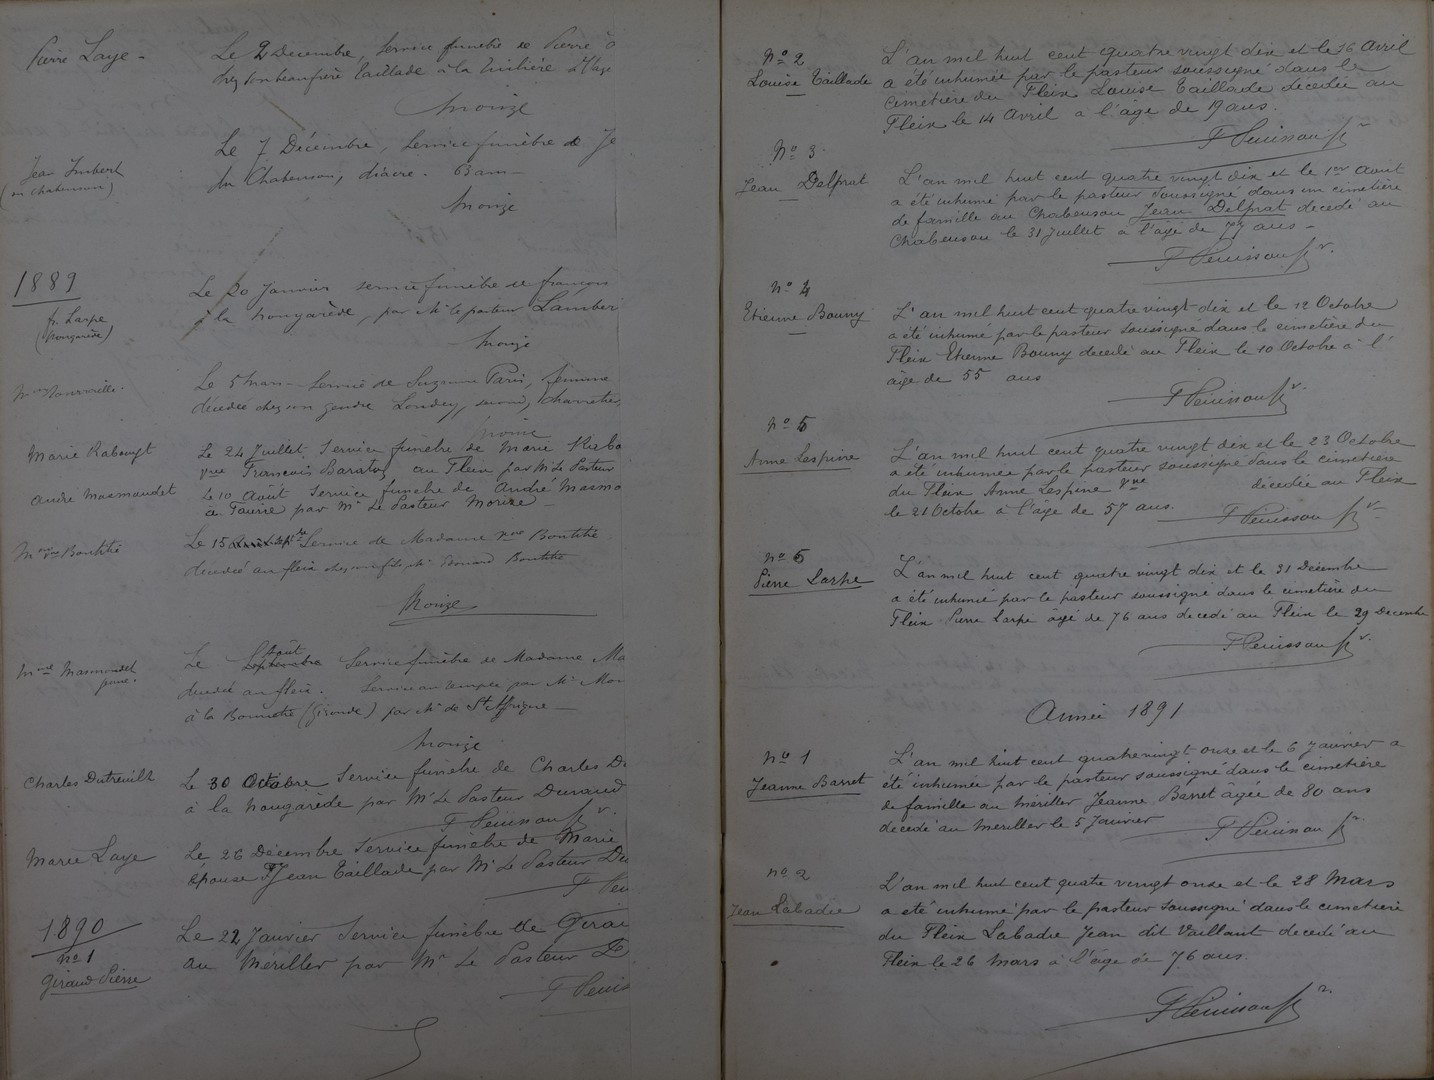 Pierre Laye -
Le 2 Décembre, Service funèbre de Pierre
chez son beau frère Taillade à la
Monize
Jean Imbert
(au chabensou)
Le 7 Décembre, Service funèbre de Je
du Chabensou, diacre. 63 ans
Monize
1889
fr. Larpe
(nougarède)
Le 20 Janvier service funèbre de francois
à la nougarède, par Mr le pasteur Lambert
Monize
Le 5 mars Service de Suzanne Paris, femme
décédée chez son gendre
Marie Rabougt
Le 24 Juillet Service funèbre de Marie Rabo
vve François Baratou au Fleix par Mr Le Pasteur
Monize
André Masmondet
Le 10 Août Service funèbre de André Masmo
par Mr Le Pasteur Monize
Mme vve Bonthé
Le 15 Service de Madame vve Bonthé
décédée au fleix chez son fils Mr Edouard Bonthé
Monize
Mme Masmondet
jeune.
Le Août Service funèbre de Madame Ma
décédée au fleix. Service au temple par Mr Mon
à la Bonnetie (Gironde) par Mr de St Affrique
Monize
Charles Dutreuilh
Le 30 Octobre Service funèbre de Charles D
à la nougarède par Mr Le Pasteur Durand
F Penissou pr
Marie Laye
Le 26 Décembre Service funèbre de Marie
épouse Jean Taillade par Mr Le Pasteur Du
F Pen
1890
no 1
Giraud Pierre
Le 22 Janvier Service funèbre de Girau
au Mériller par Mr Le Pasteur D
F Peniss
No 2
Louise Taillade
L'an mil huit cent quatre vingt dix et le 16 Avril
a été inhumée par le pasteur soussigné dans le
cimetière du Fleix Louise Taillade décédée au
Fleix le 14 Avril à l'âge de 19 ans.
F Penissou pr
No 3.
Jean Delprat
L'an mil huit cent quatre vingt dix et le 1er Août
a été inhumé par le pasteur soussigné dans un cimetière
de famille au Chabensou Jean Delprat décédé au
Chabensou le 31 Juillet à l'âge de 77 ans -
F Penissou pr.
No 4
Etienne Bouny
L'an mil huit cent quatre vingt dix et le 12 Octobre
a été inhumé par le pasteur soussigné dans le cimetière du
Fleix Etienne Bouny décédé au Fleix le 10 Octobre à l'
âge de 55 ans
F Penissou pr.
No 5
Anne Lespine
L'an mil huit cent quatre vingt dix et le 23 Octobre
a été inhumée par le pasteur soussigné dans le cimetière
du Fleix Anne Lespine vve décédée au Fleix
le 21 Octobre à l'âge de 57 ans.
F Penissou pr
No 6
Pierre Larpe
L'an mil huit cent quatre vingt dix et le 31 Décembre
a été inhumé par le pasteur soussigné dans le cimetière du
Fleix Pierre Larpe âgé de 76 ans décédé au Fleix le 29 Décembre
F Penissou pr.
Année 1891
No 1
Jeanne Barret
L'an mil huit cent quatre vingt onze et le 6 Janvier a
été inhumée par le pasteur soussigné dans le cimetière
de famille au Mériller Jeanne Barret âgée de 80 ans
décédé au Mériller le 5 Janvier
F Penissou pr
no 2
Jean Labadie
L'an mil huit cent quatre vingt onze et le 28 Mars
a été inhumé par le pasteur soussigné dans le cimetière
du Fleix Labadie Jean dit Vaillant décédé au
Fleix le 26 Mars à l'âge de 76 ans.
F Penissou pr.